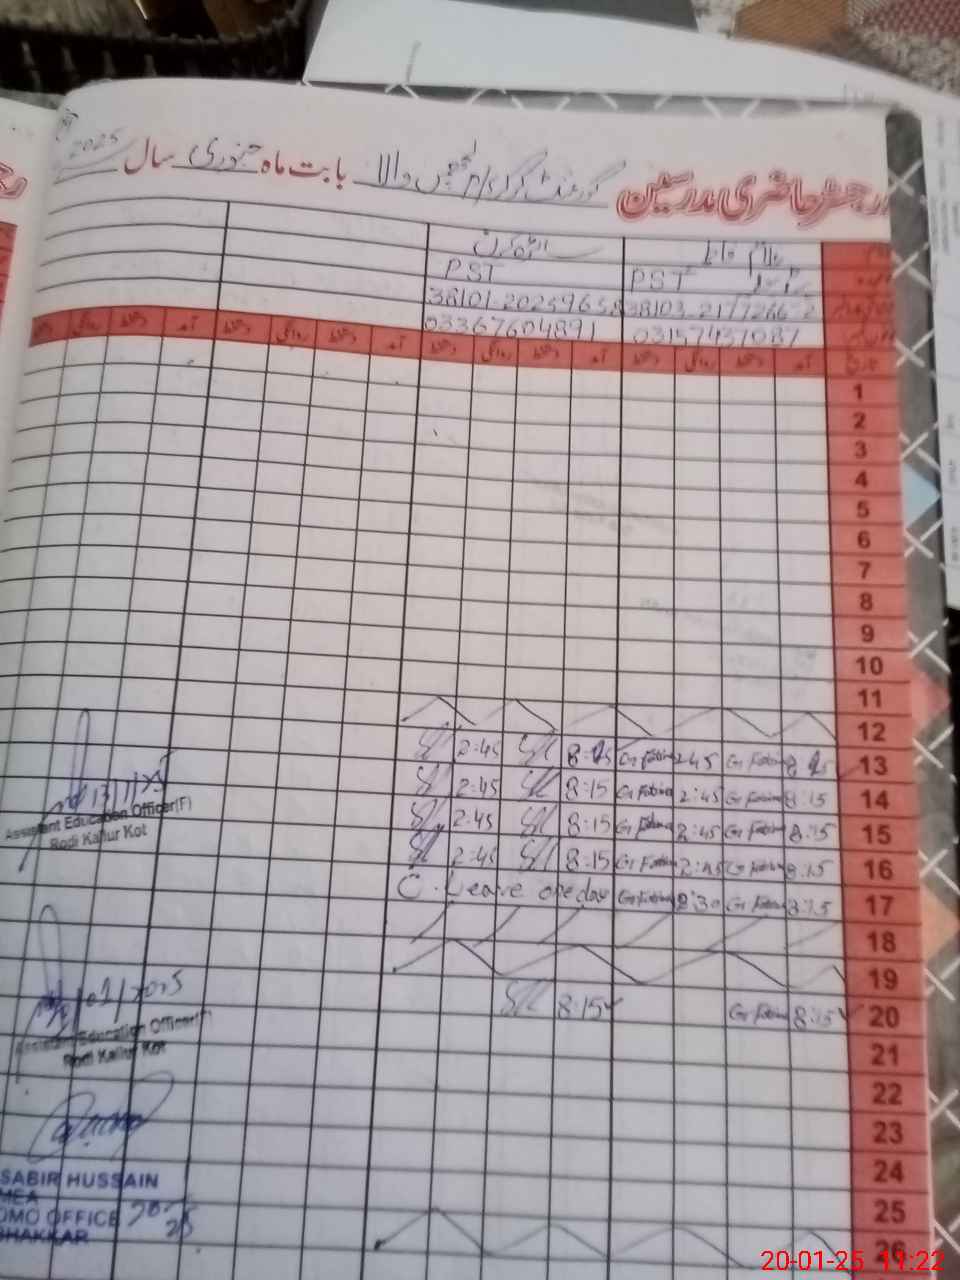 رجسٹر حاضری مدرسین گورنمنٹ گرلز والا بابت ماہ جنوری سال 2025
غلام فاطمہ
PST PST
38103-2177266-2 38101-2025965
03157437087 03367604891
تاریخ آمد دستخط روانگی دستخط آمد دستخط روانگی دستخط آمد دستخط روانگی دستخط آمد دستخط روانگی
1
2
3
4
5
6
7
8
9
10
11
12
2:45 8:15 Gr Fatima 2:45 Gr Fatima 13
2:45 8:15 Gr Fatima 2:45 Gr Fatima 8:15 14
2:45 8:15 Gr Fatima 2:45 Gr Fatima 8:15 15
2:45 8:15 Gr Fatima 2:45 Gr Fatima 8:15 16
C. Leave one day Gr Fatima Gr Fatima 8:15 17
18
19
8:15 Gr Fatima 8:15 20
21
22
23
24
25
26
13/1/25
Assistant Education Officer(F)
Rodi Kallur Kot
/01/2025
Assistant Education Officer(F)
Rodi Kallur Kot
SABIR HUSSAIN
MEA
DMO OFFICE
BHAKKAR
20-01-25 11:22